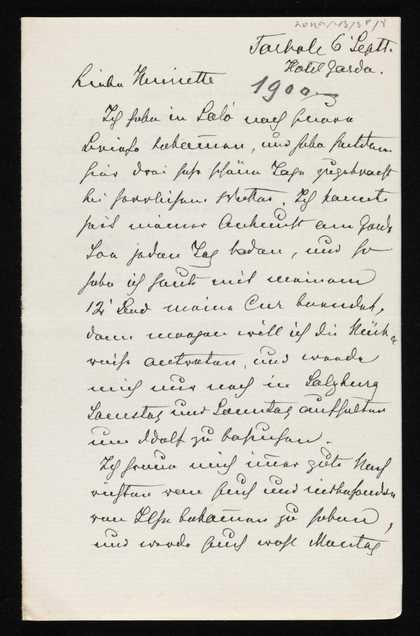 Torbole 6 Sept.
Hotel Garda.
1900
Liebe Henriette
Ich habe in Salò noch Eure
Briefe bekommen, und habe seitdem
hier drei sehr schöne Tage zugebracht
bei herrlichem Wetter. Ich konnte
seit meiner Ankunft am Garda
See jeden Tag baden, und so
habe ich heute mit meinem
12' Bad meine Cur beendet,
denn morgen will ich die Rück-
reise antreten, und werde
mich nur noch in Salzburg
Samstag und Sonntag aufhalten
um Adolf zu besuchen.
Ich freue mich immer gute Nach
richten von Euch und insbesondere
von Ilse bekommen zu haben,
und werde Euch wohl Montag